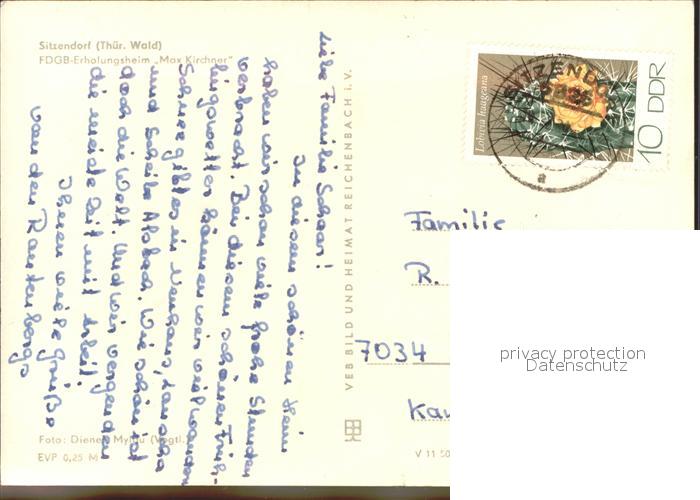 Sitzendorf (Thür. Wald)
FDGB-Erholungsheim „Max Kirchner"
Liebe Familie Schaar!
In diesem schönen Heim
haben wir schon viele frohe Stunden
verbracht. Bei diesem schönen Früh-
lingswetter können wir viel wandern
Schnee gibt es in Neuhaus,
und Scheibe Alsbach. Wie schön ist
doch die Welt. Und wir vergessen
die meiste Zeit mit
Ihnen viele Grüße
von den Rautenbergs
Foto: Diener Mylau (Vogtl.)
EVP 0,25 M
VEB BILD UND HEIMAT REICHENBACH i. V.
Lobivia haageana
10 DDR
SITZENDO
a
Familie
R.
7034
Kau
V 11 50
privacy protection
Datenschutz